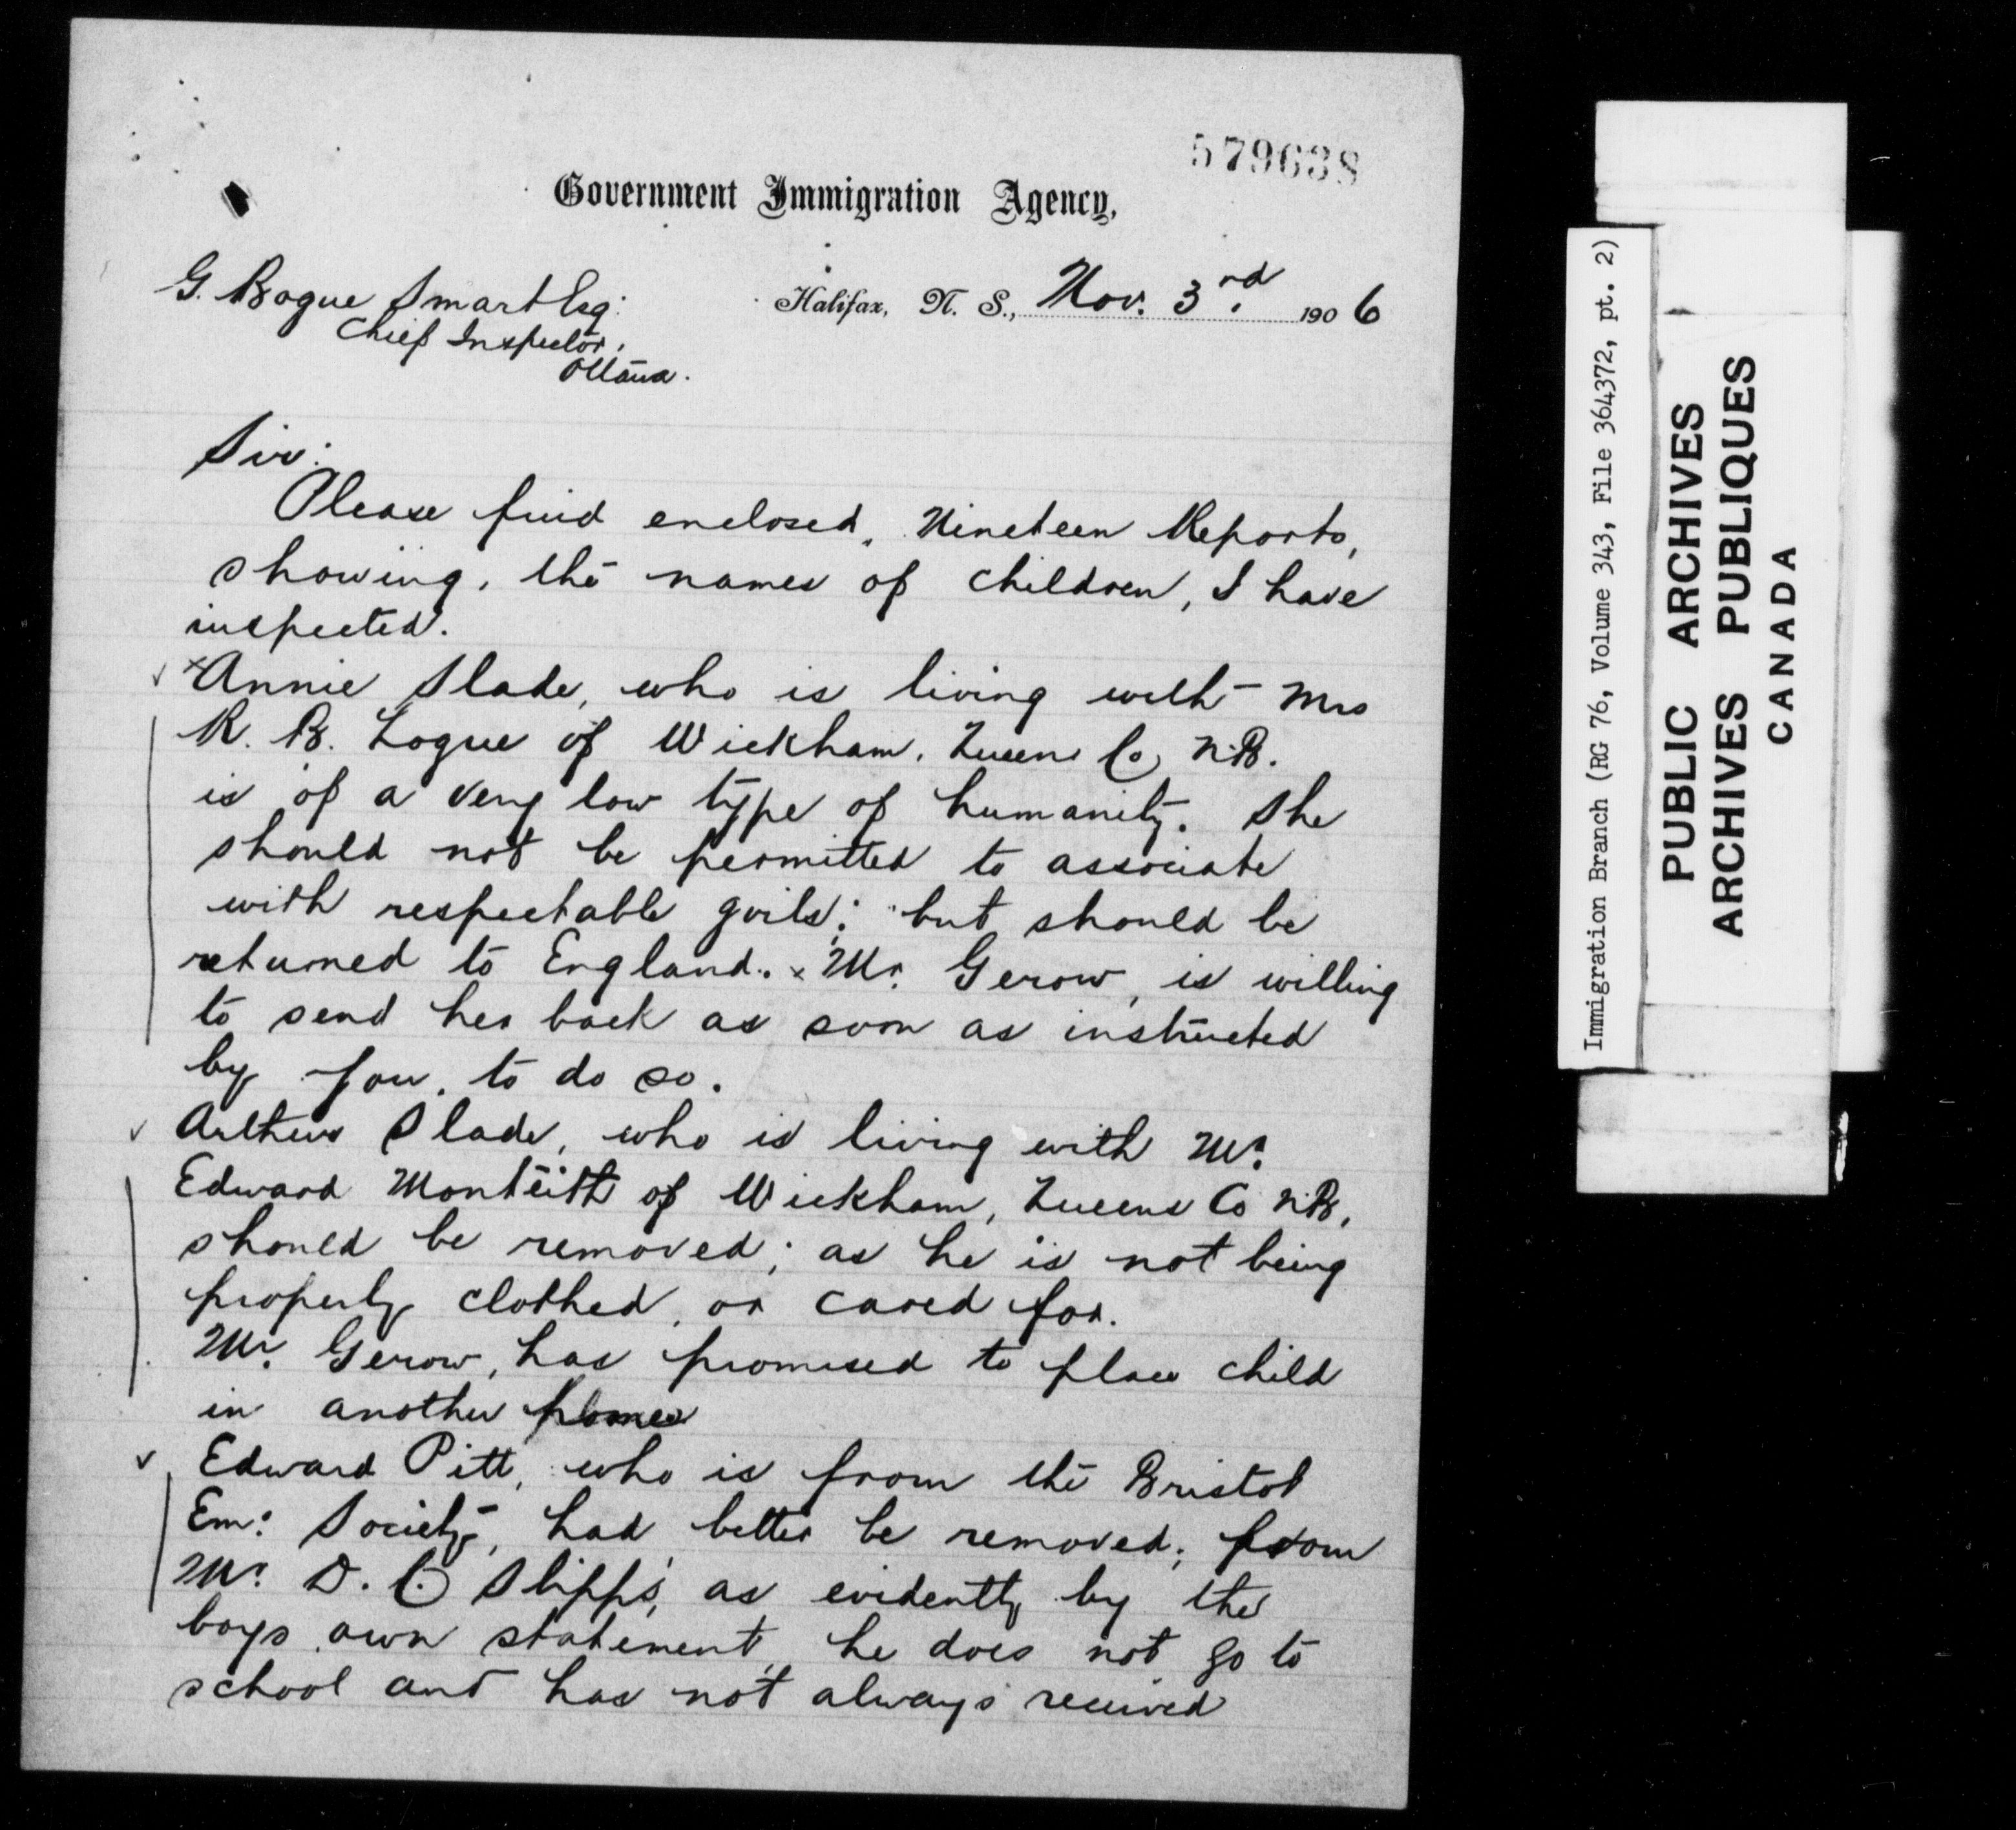 579638
Government Immigration Agency,
G. Bogue Smart Esq:
Chief Inspector,
Ottawa.
Halifax, N. S., Nov. 3rd. 1906
Sir:
Please find enclosed, Nineteen Reports,
showing, the names of children, I have
inspected.
Annie Slade, who is living with Mrs
R. B. Logue of Wickham, Queens Co, N.B.
is of a very low type of humanity. She
should not be permitted to associate
with respectable girls; but should be
returned to England. x Mr. Gerow, is willing
to send her back as soon as instructed
by you, to do so.
Arthur Slade, who is living with Mr.
Edward Monteith of Wickham, Queens Co N.B,
should be removed; as he is not being
properly clothed, or cared for.
Mr. Gerow, has promised to place child
in another home
Edward Pitt, who is from the Bristol
Em: Society, had better be removed; from
Mr. D. C. Slipps, as evidently by the
boys own statement, he does not go to
school and has not always received
Immigration Branch (RG 76, Volume 343, File 364372, pt. 2)
PUBLIC ARCHIVES
ARCHIVES PUBLIQUES
CANADA